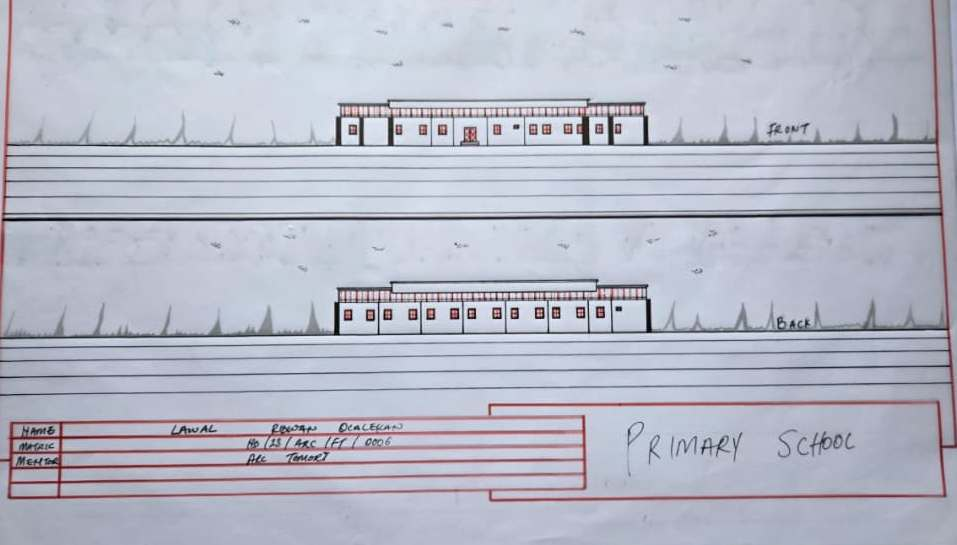 FRONT
BACK
NAME LAWAL RIDWAN OLALEKAN
MATRIC HD/23/ARC/FT/0006
MENTOR ARC TOMORI
PRIMARY SCHOOL